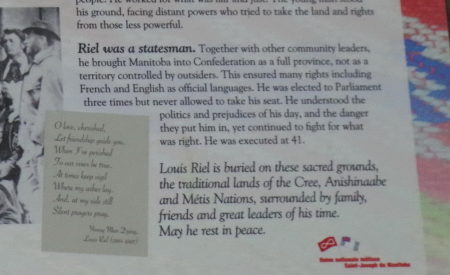 people. He worked for what was fair and just. The young man stood
his ground, facing distant powers who tried to take the land and rights
from those less powerful.
Riel was a statesman. Together with other community leaders,
he brought Manitoba into Confederation as a full province, not as a
territory controlled by outsiders. This ensured many rights including
French and English as official languages. He was elected to Parliament
three times but never allowed to take his seat. He understood the
politics and prejudices of his day, and the danger
they put him in, yet continued to fight for what
was right. He was executed at 41.
O love, cherished,
Let friendship guide you,
When I've perished
To our vows be true.
At times keep vigil
Where my ashes lay,
And, at my side still
Silent prayers pray.
Young Man Dying,
Louis Riel
Louis Riel is buried on these sacred grounds,
the traditional lands of the Cree, Anishinaabe
and Métis Nations, surrounded by family,
friends and great leaders of his time.
May he rest in peace.
Union nationale métisse
Saint-Joseph du Manitoba